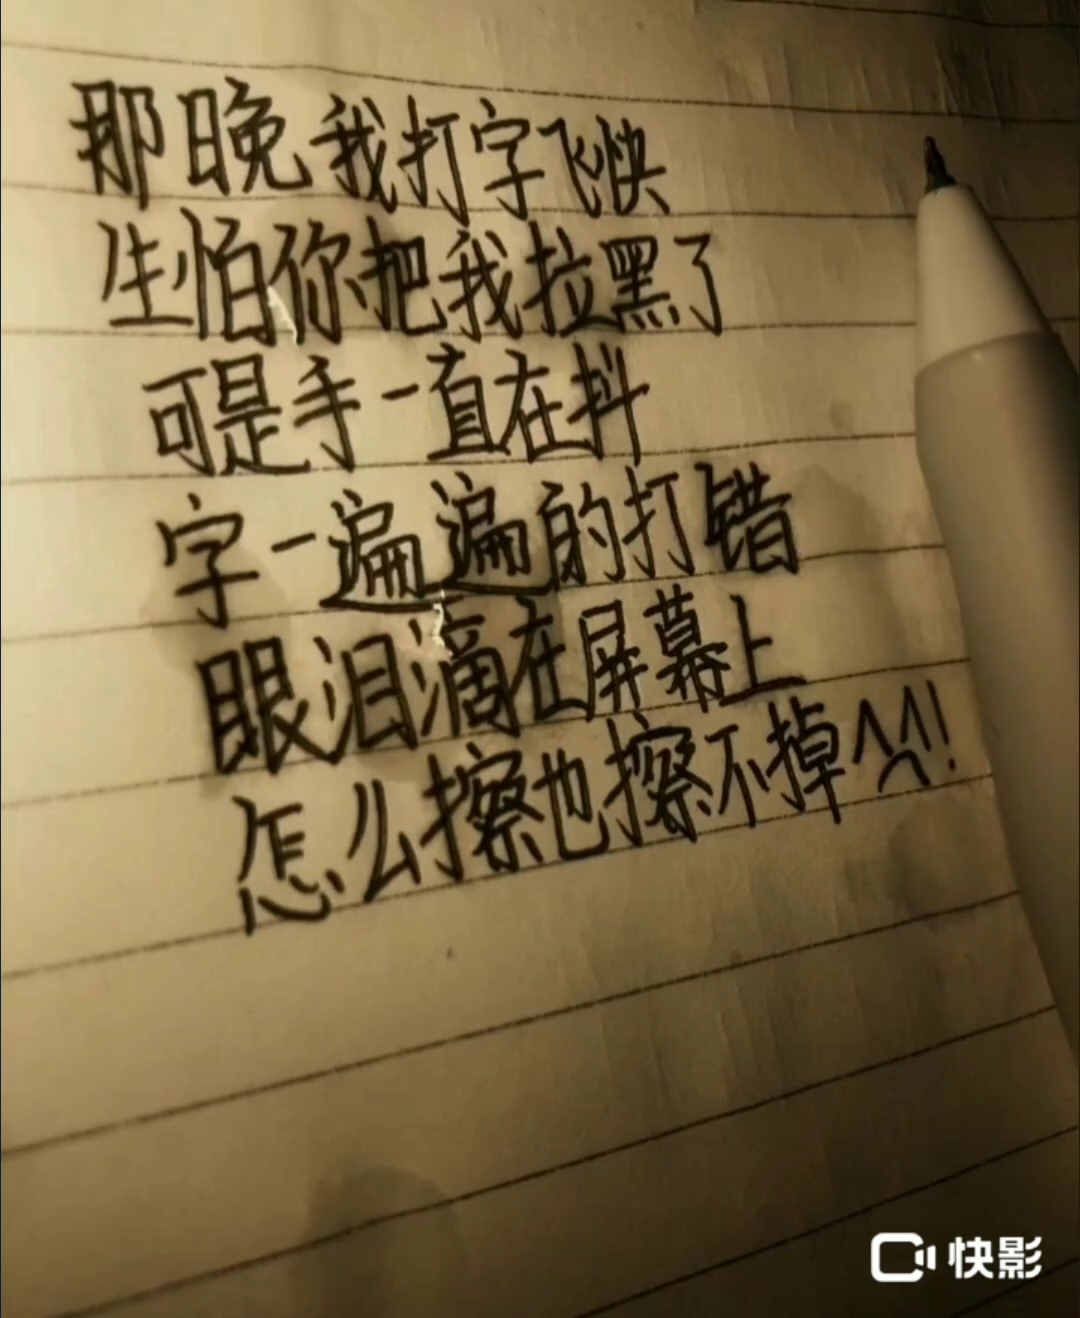 那晚我打字飞快
生怕你把我拉黑了
可是手一直在抖
字一遍遍的打错
眼泪滴在屏幕上
怎么擦也擦不掉^^!
快影